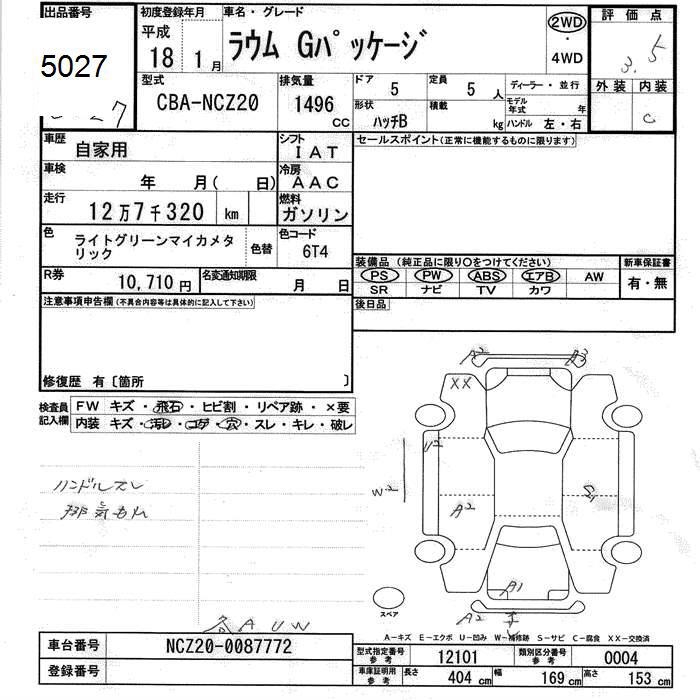 出品番号 初度登録年月 車名・グレード 評価点
5027
平成 18 1月 ラウム Gパッケージ 2WD ・ 4WD 3.5
型式 排気量 ドア 5 定員 5人 ディーラー・並行 外装 内装
CBA-NCZ20 1496 CC 形状 ハッチB 積載 kg モデル年式 年 ハンドル 左・右 C
車歴 自家用 シフト IAT セールスポイント(正常に機能するものに限ります)
車検 年 月( 日) 冷房 AAC
走行 12万7千320 km 燃料 ガソリン
色 ライトグリーンマイカメタリック 色替 色コード 6T4
装備品(純正品に限り〇をつけてください) 新車保証書
PS PW ABS エアB AW 有・無
SR ナビ TV カワ
R券 10,710円 名変通知期限 月 日
後日品
注意事項申告欄(不具合内容等は具体的に記入して下さい)
修復歴 有〔箇所 〕
検査員記入欄 FW キズ・飛石・ヒビ割・リペア跡・×要
内装 キズ・汚レ・コゲ・穴・スレ・キレ・破レ
A2 A3
XX
U2
W2
A2
ハンドルスレ
A1
スペア
A2
各AUW
A-キズ E-エクボ U-凹み W-補修跡 S-サビ C-腐食 XX-交換済
車台番号 NCZ20-0087772
登録番号
型式指定番号 参考 12101 類別区分番号 参考 0004
車庫証明用 参考 長さ 404 cm 幅 169 cm 高さ 153 cm